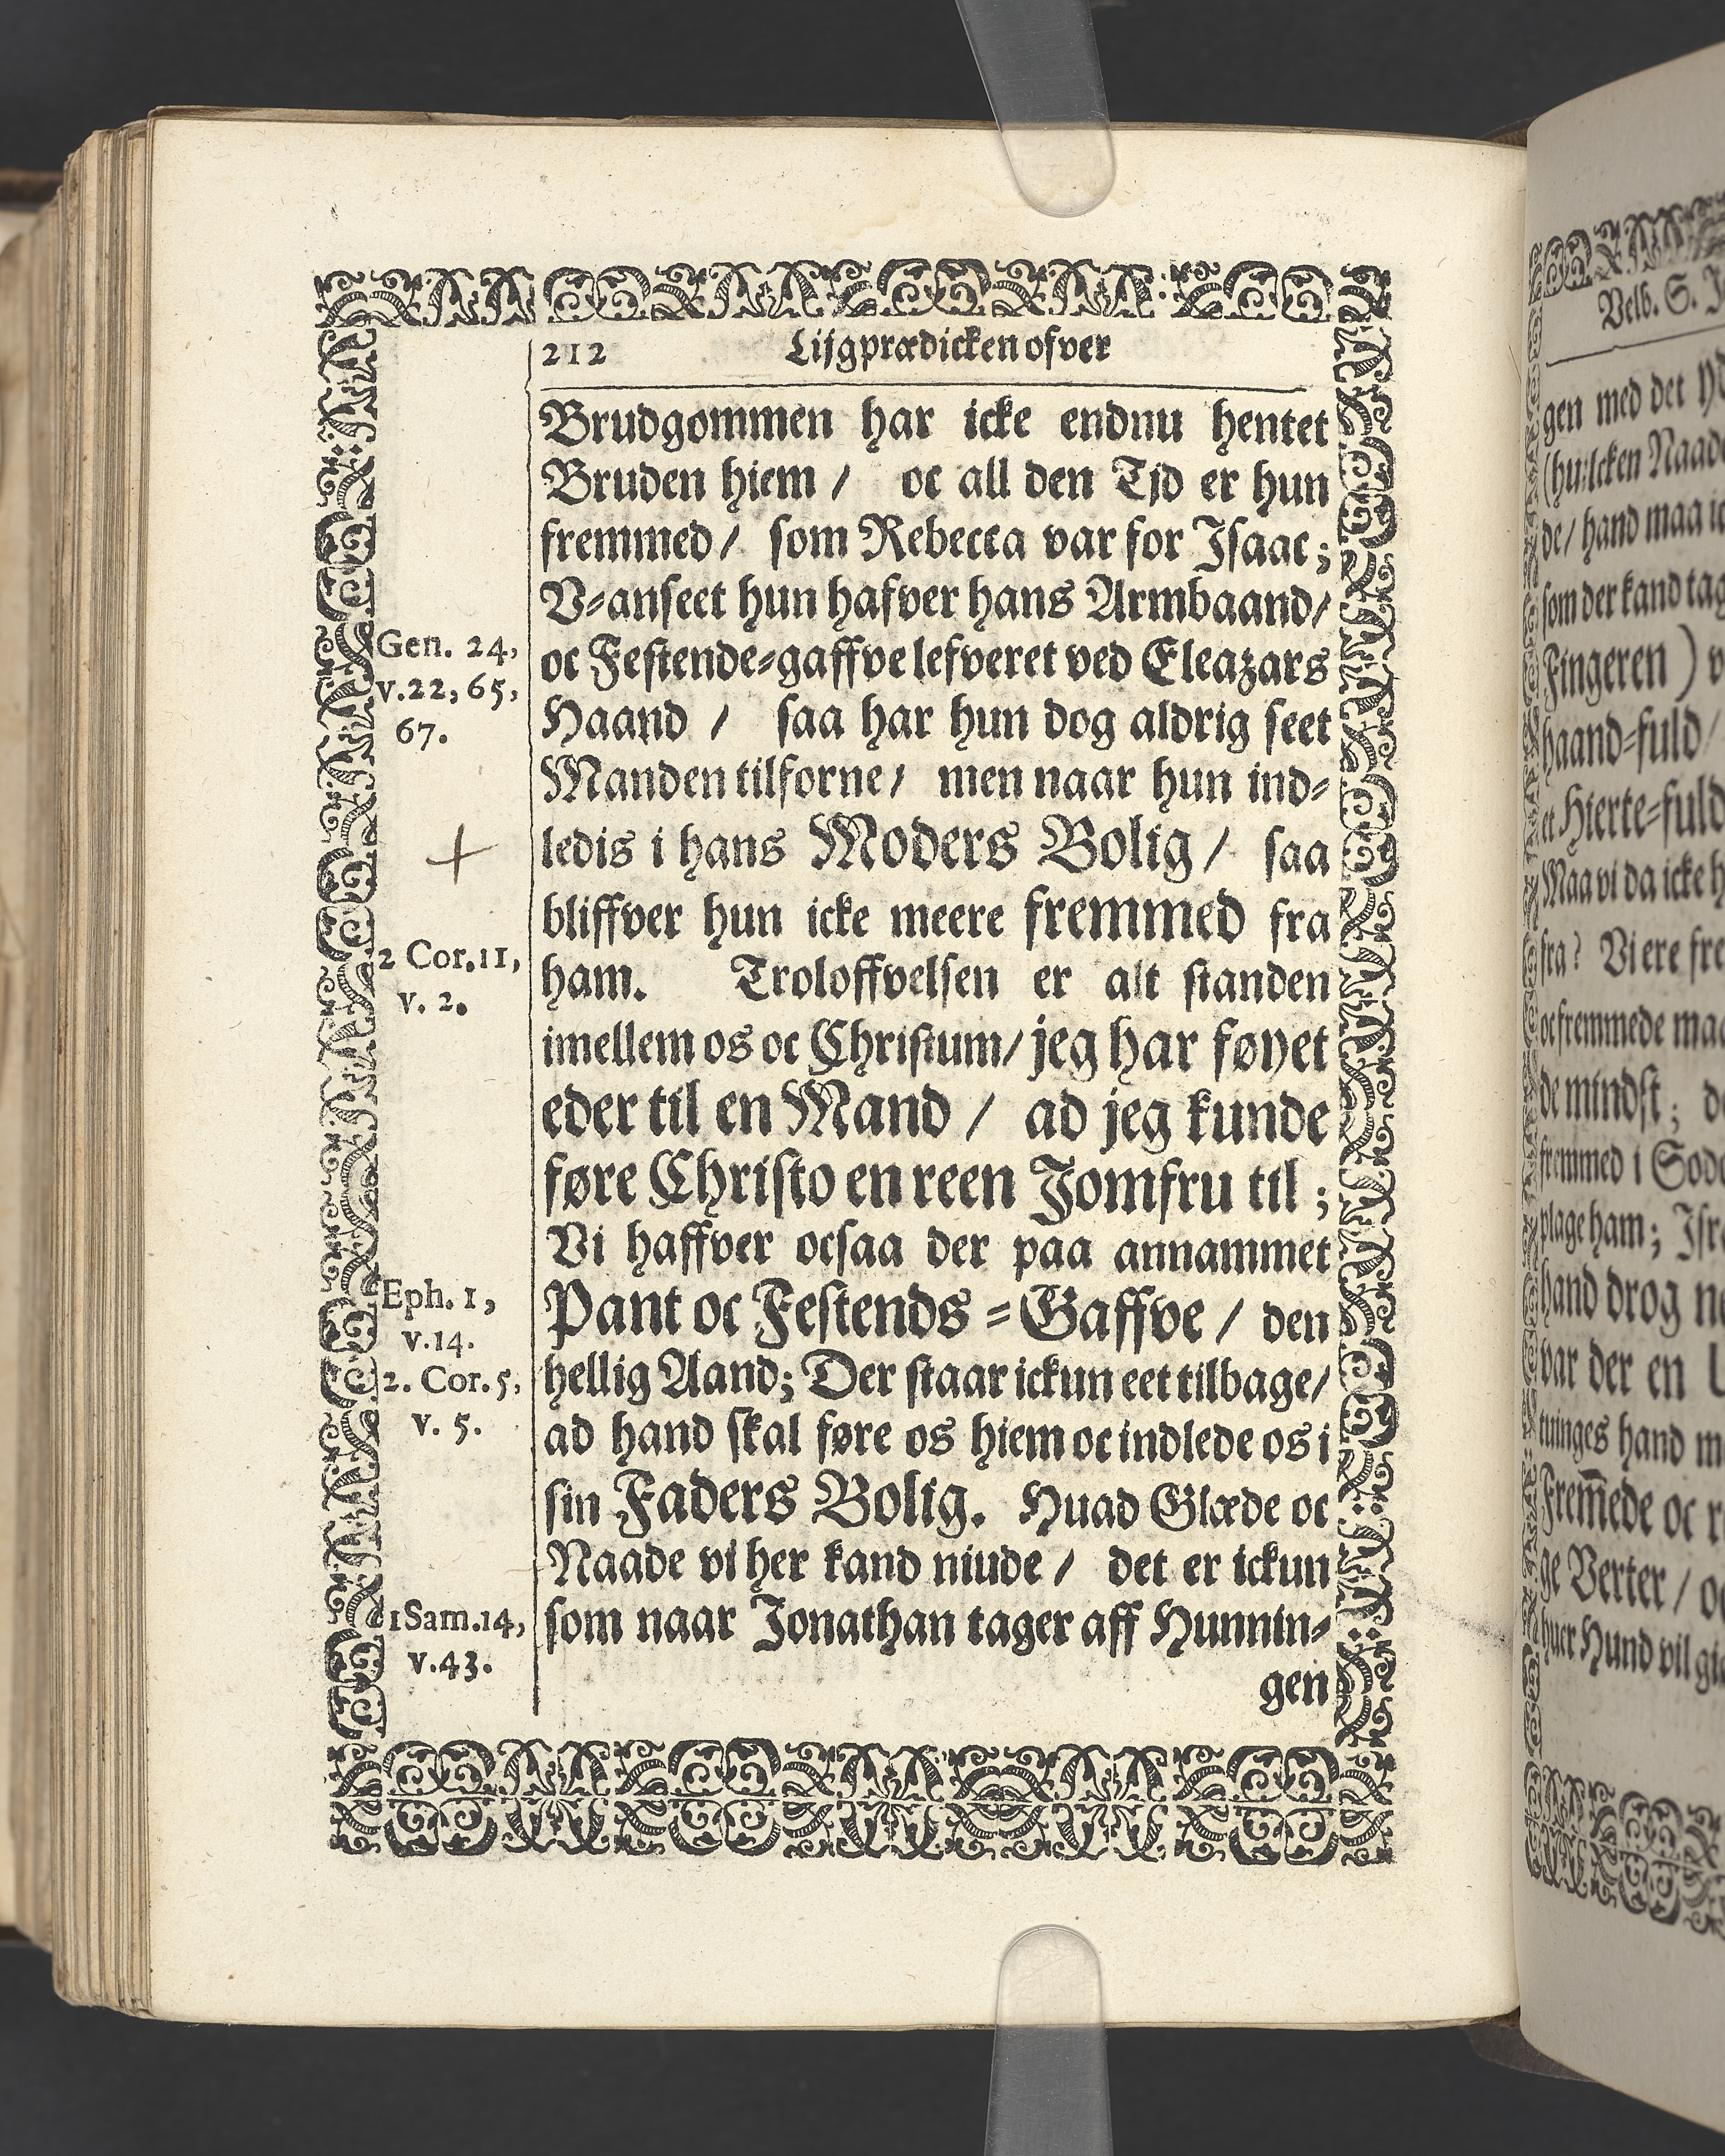 212 Lijgprædicken ofver
Brudgommen har icke endnu hentet
Bruden hiem / oc all den Tjd er hun
fremmed / som Rebecca var for Isaac;
V-anseet hun hafver hans Armbaand/
oc Festende-gaffve lefveret ved Eleazars
Haand / saa har hun dog aldrig seet
Manden tilforne / men naar hun ind-
ledis i hans Moders Bolig / saa
bliffver hun icke meere fremmed fra
ham. Troloffvelsen er alt standen
imellem os oc Christum / jeg har føyet
eder til en Mand / ad jeg kunde
føre Christo en reen Jomfru til ;
Vi haffver ocsaa der paa annammet
Pant oc Festends-Gaffve / den
hellig Aand; Der staar ickun eet tilbage/
ad hand skal føre os hiem oc indlede os i
sin Faders Bolig. Huad Glæde oc
Naade vi her kand niude / det er ickun
som naar Jonathan tager aff Hunnin-
gen
Gen. 24,
v.22, 65,
67.
2 Cor.11,
v. 2.
Eph. 1,
v.14.
2. Cor. 5,
v. 5.
1 Sam.14,
v.43.
Velb. S.
gen med det
(huilcken Naade
de / hand maa
som der kand
Fingeren )
haand-fuld /
et Hierte-fuld
Maa vi da icke
fra? Vi ere
oc fremmede
de mindst;
fremmed i
plage ham;
hand drog
var der en
tuinges hand
Frem̃ede oc
ge Verter /
huer Hund vil